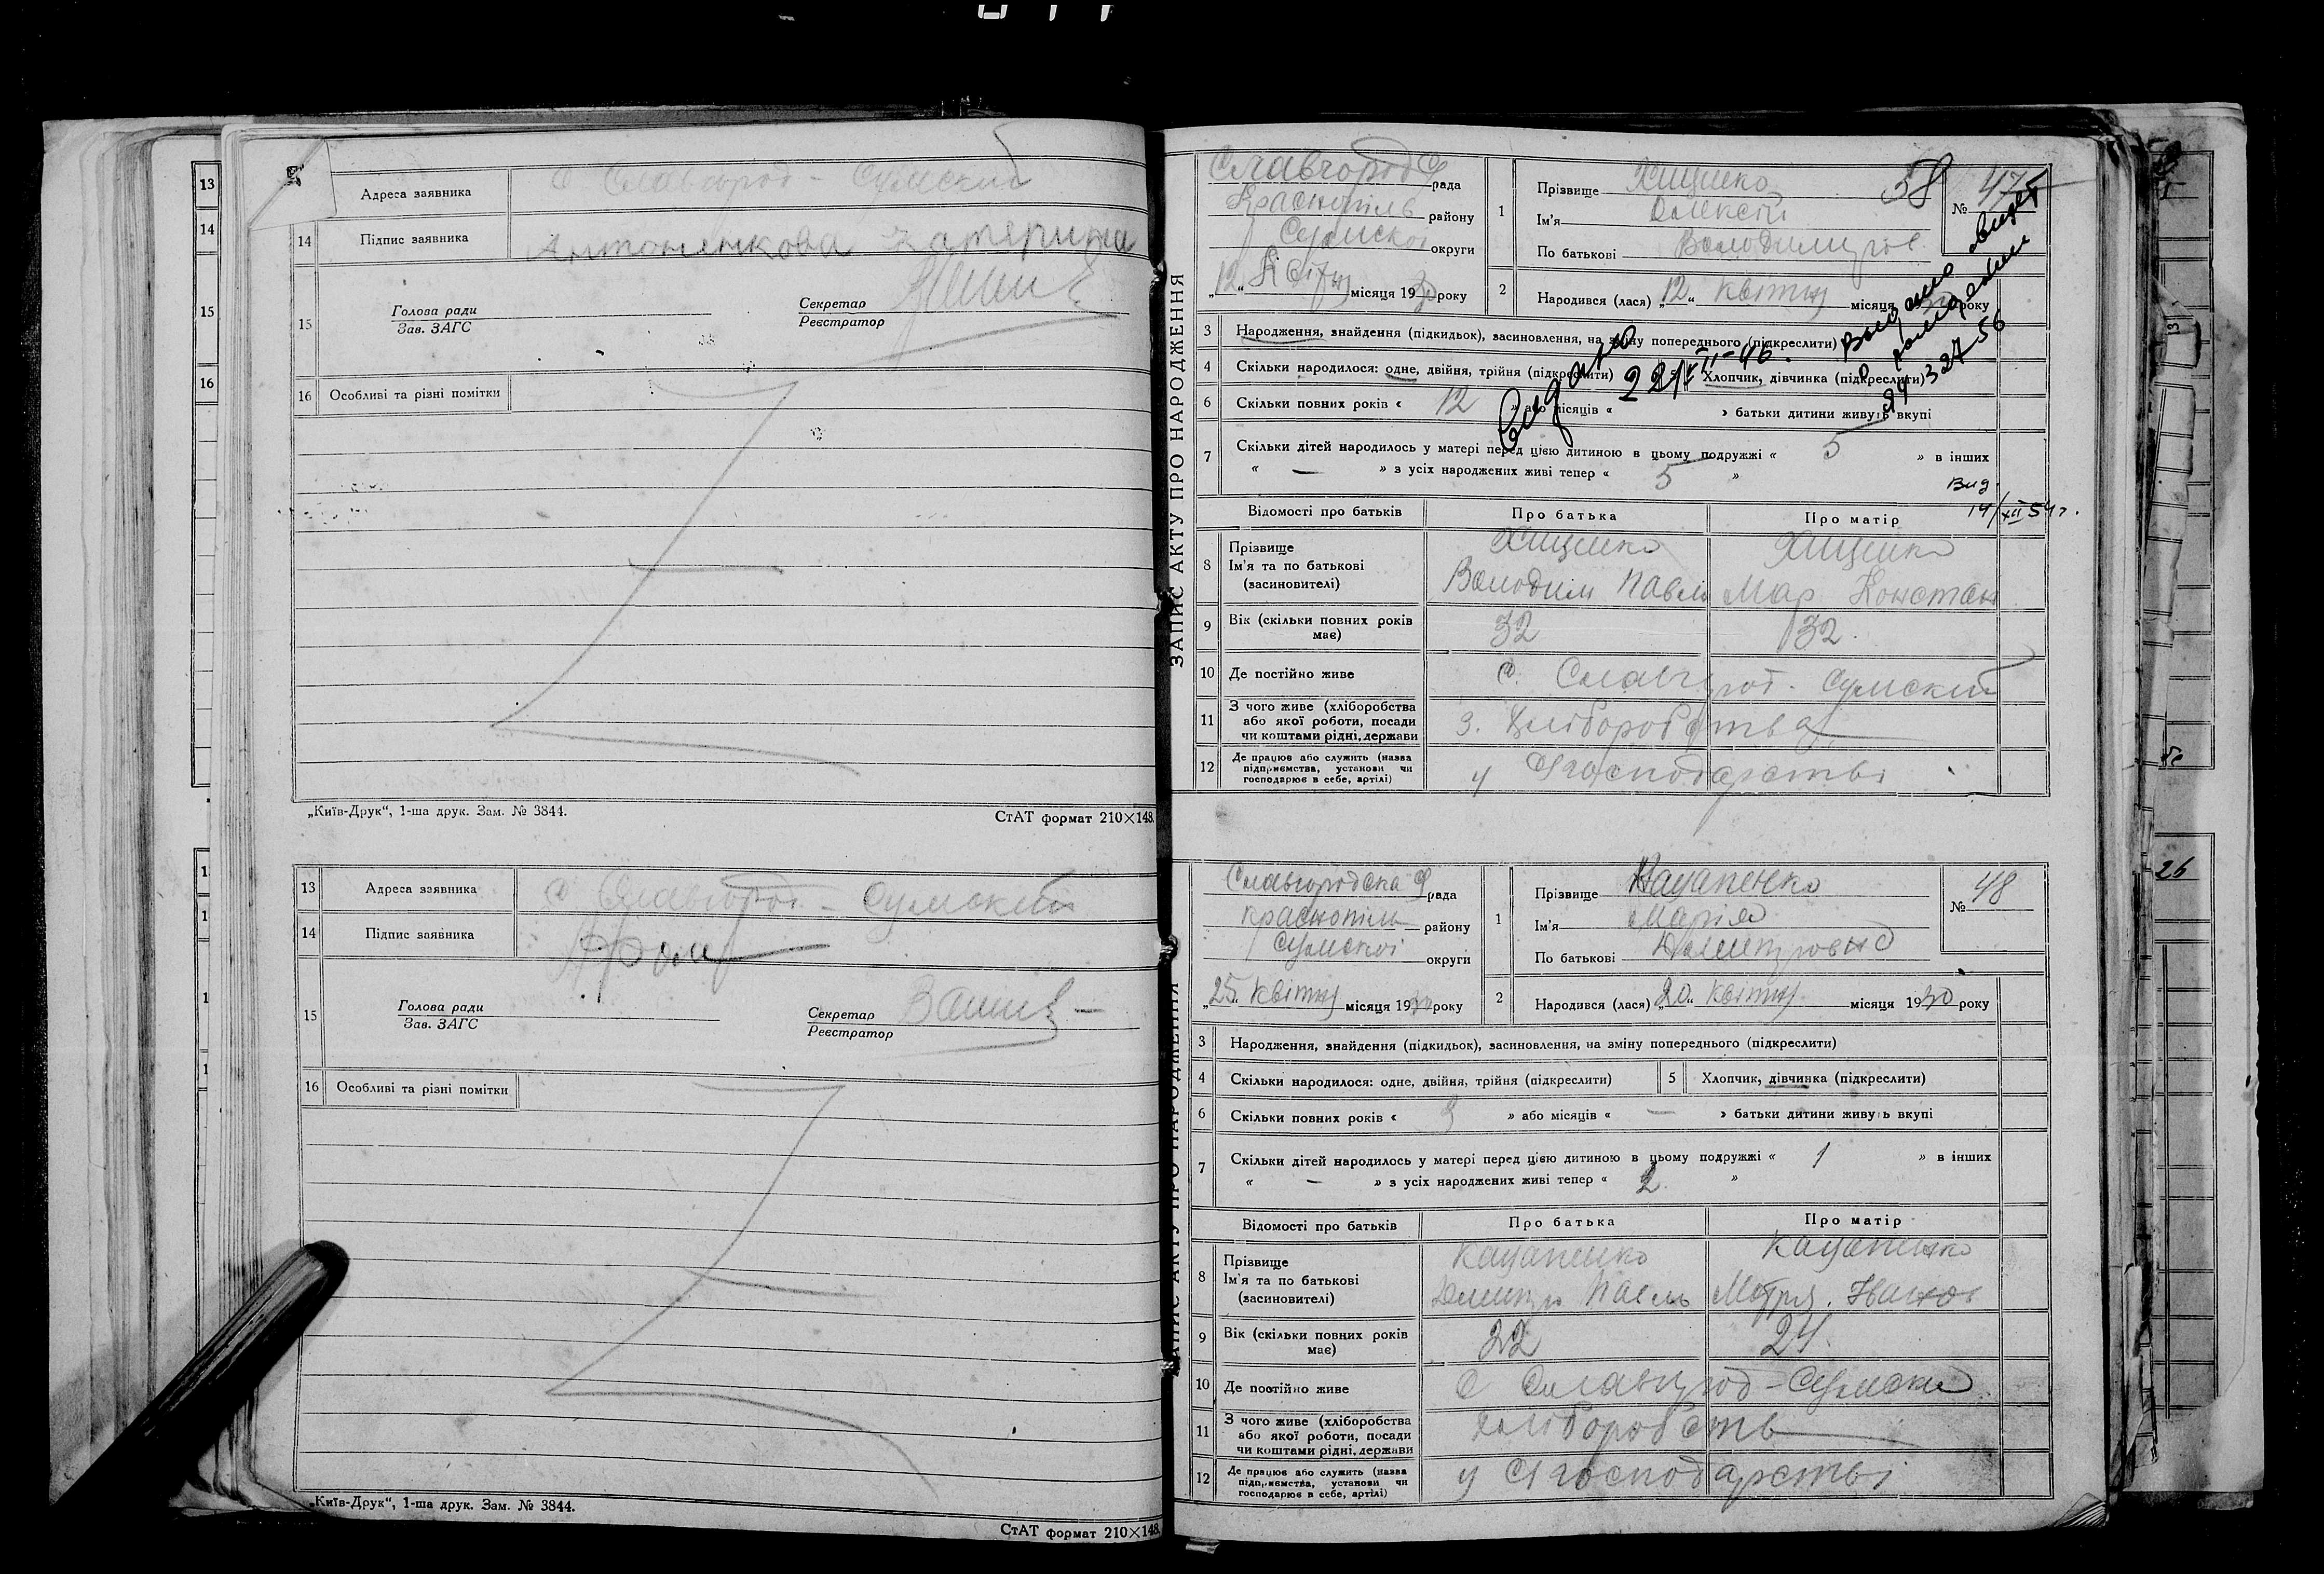 13 Адреса заявника С Славгород - Сумский
14 Підпис заявника Антоненкова Катерина
15 Голова ради Секретар
Зав. ЗАГС Реєстратор
16 Особливі та різні помітки
„Київ-Друк“, 1-ша друк. Зам. № 3844. СтАТ формат 210×148.
13 Адреса заявника С Славгород - Сумский
14 Підпис заявника
15 Голова ради Секретар
Зав. ЗАГС Реєстратор
16 Особливі та різні помітки
„Київ-Друк“, 1-ша друк. Зам. № 3844.
СтАТ формат 210×148.
ЗАПИС АКТУ ПРО НАРОДЖЕННЯ
Славгород С рада
Краснопіль району
Сумскої округи
„12“ Квітня місяця 1930 року
1 Прізвище Хищенко 58 № 47
Ім'я Олексій
По батькові Володимиров.
2 Народився (лася) „12“ Квітня місяця 30 року
3 Народження, знайдення (підкидьок), засиновлення, на зміну попереднього (підкреслити)
4 Скільки народилося: одне, двійня, трійня (підкреслити) Хлопчик, дівчинка (підкреслити)
6 Скільки повних років « 12 » або місяців « » батьки дитини живуть вкупі
7 Скільки дітей народилось у матері перед цією дитиною в цьому подружжі « 5 » в інших
« — » з усіх народжених живі тепер « 5 »
Видано 22/VII-46.
о рождении
327 56
Вид
14/XII 54 г.
Відомості про батьків Про батька Про матір
8 Прізвище Хищенко Хищенко
Ім'я та по батькові Володим Павл Мар Констан
(засиновителі)
9 Вік (скільки повних років має) 32 32.
10 Де постійно живе С. Славгород - Сумский
11 З чого живе (хліборобства або якої роботи, посади чи коштами рідні, держави З. Хліборобства
12 Де працює або служить (назва підприємства, установи чи господарює в себе, артілі) у С господарстві
ЗАПИС АКТУ ПРО НАРОДЖЕННЯ
Славгородска С рада
Краснопіль району
Сумскої округи
„25“ Квітня місяця 1930 року
1 Прізвище Кацапенко № 48
Ім'я Марія
По батькові Дмитровна
2 Народився (лася) „20“ Квітня місяця 1930 року
3 Народження, знайдення (підкидьок), засиновлення, на зміну попереднього (підкреслити)
4 Скільки народилося: одне, двійня, трійня (підкреслити) 5 Хлопчик, дівчинка (підкреслити)
6 Скільки повних років « 3 » або місяців « — » батьки дитини живуть вкупі
7 Скільки дітей народилось у матері перед цією дитиною в цьому подружжі « 1 » в інших
« — » з усіх народжених живі тепер « 2 »
Відомості про батьків Про батька Про матір
8 Прізвище Кацапенко Кацапенко
Ім'я та по батькові Дмитро Павль Мотря. Іванов
(засиновителі)
9 Вік (скільки повних років має) 22 24.
10 Де постійно живе С Славгород - Сумски
11 З чого живе (хліборобства або якої роботи, посади чи коштами рідні, держави Хліборобств
12 Де працює або служить (назва підприємства, установи чи господарює в себе, артілі) у С господарстві